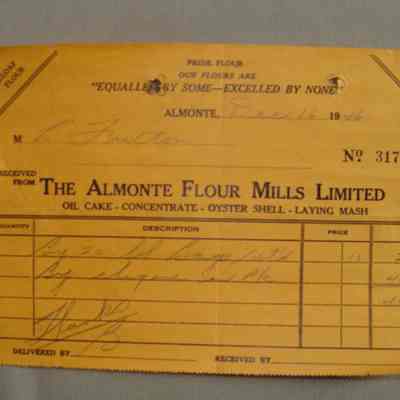 PRIDE FLOUR
OUR FLOURS ARE
"EQUALLED BY SOME—EXCELLED BY NONE"
FLOUR
ALMONTE, Dec 16 1946
M Fulton
No. 317
RECEIVED FROM THE ALMONTE FLOUR MILLS LIMITED
OIL CAKE - CONCENTRATE - OYSTER SHELL - LAYING MASH
QUANTITY DESCRIPTION PRICE
By 20
By cheque
DELIVERED BY RECEIVED BY